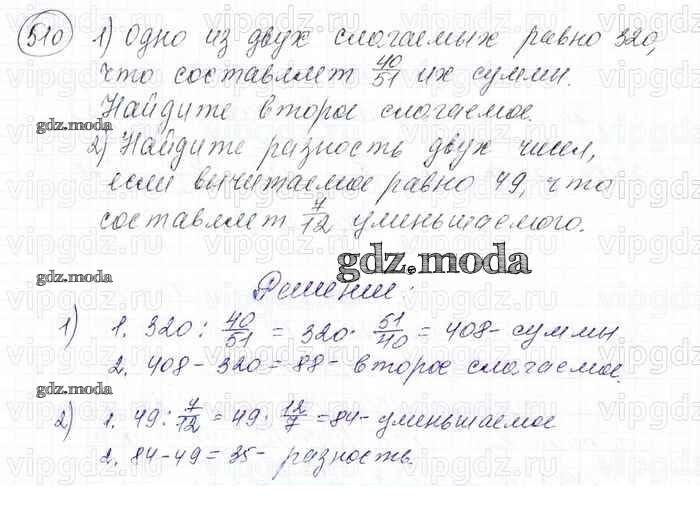 510 1) Одно из двух слагаемых равно 320,
что составляет 40/51 их суммы.
Найдите второе слагаемое.
gdz.moda
2) Найдите разность двух чисел,
если вычитаемое равно 49, что
составляет 7/12 уменьшаемого.
gdz.moda
gdz.moda
Решение:
1) 1. 320 : 40/51 = 320 · 51/40 = 408 - суммы
2. 408 - 320 = 88 - второе слагаемое.
gdz.moda
2) 1. 49 : 7/12 = 49 · 12/7 = 84 - уменьшаемое
2. 84 - 49 = 35 - разность.